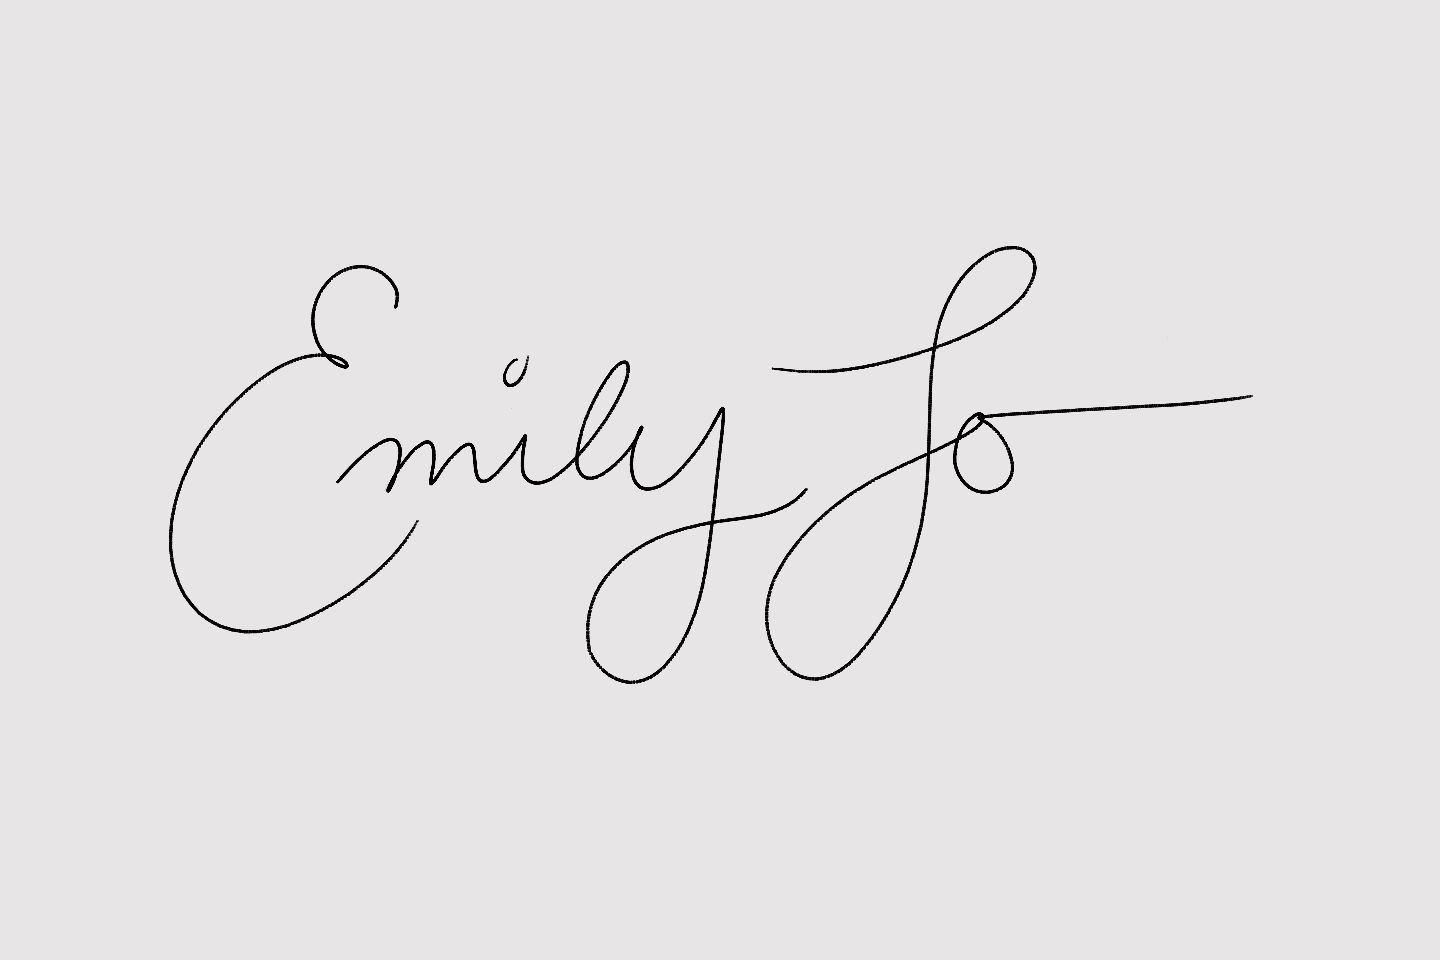 Emily Jo